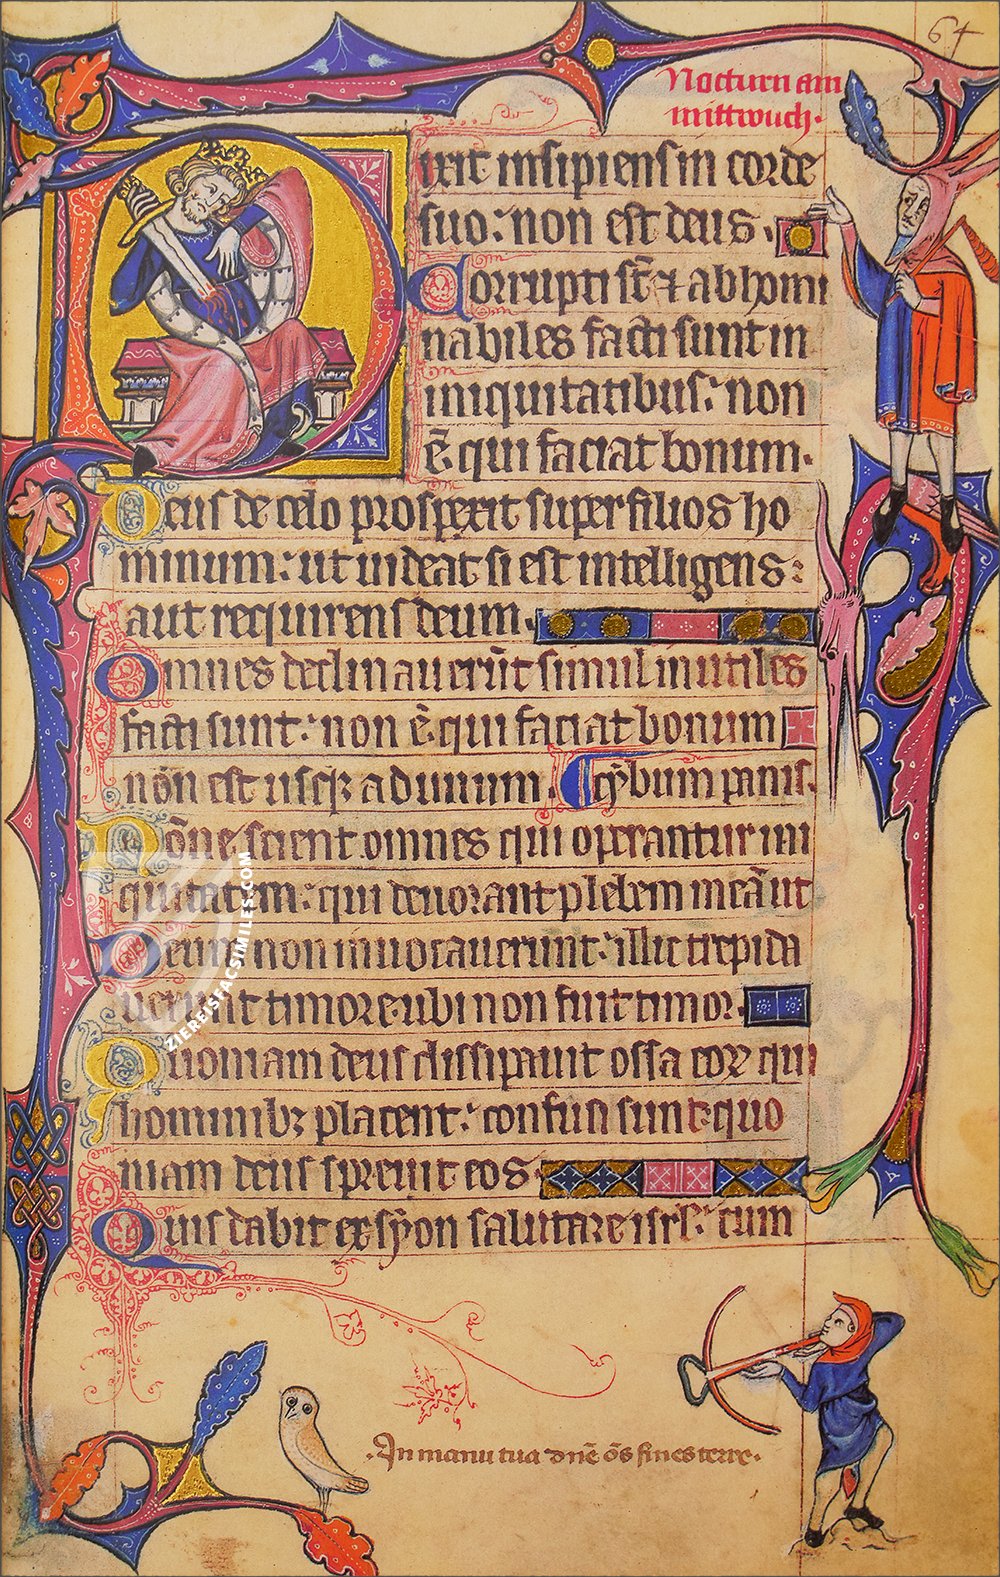 64
Nocturn am
mittwuch.
Dixit insipiens in corde
suo: non est deus.
Corrupti st̄ ⁊ abhomi
nabiles facti sunt in
iniquitatibus: non
ē qui faciat bonum.
Deus de celo prospexit super filios ho
minum: ut uideat si est intelligens:
aut requirens deum.
Omnes declinauer̄t simul inutiles
facti sunt: non ē qui faciat bonum
non est usq; ad unum. Cybum panis.
Nōne scient omnes qui operantur ini
quitatem: qui deuorant plebem meā ut
Deum non inuocauerunt: illic trepida
uerunt timore. ubi non fuit timor.
Quoniam deus dissipauit ossa eoꝝ qui
hominibꝫ placent: confusi sunt. quo
niam deus spreuit eos.
Quis dabit ex syon salutare isrl: cum
.In manu tua dn̄e ōs fines terre.
ZIEREISFACSIMILES.COM